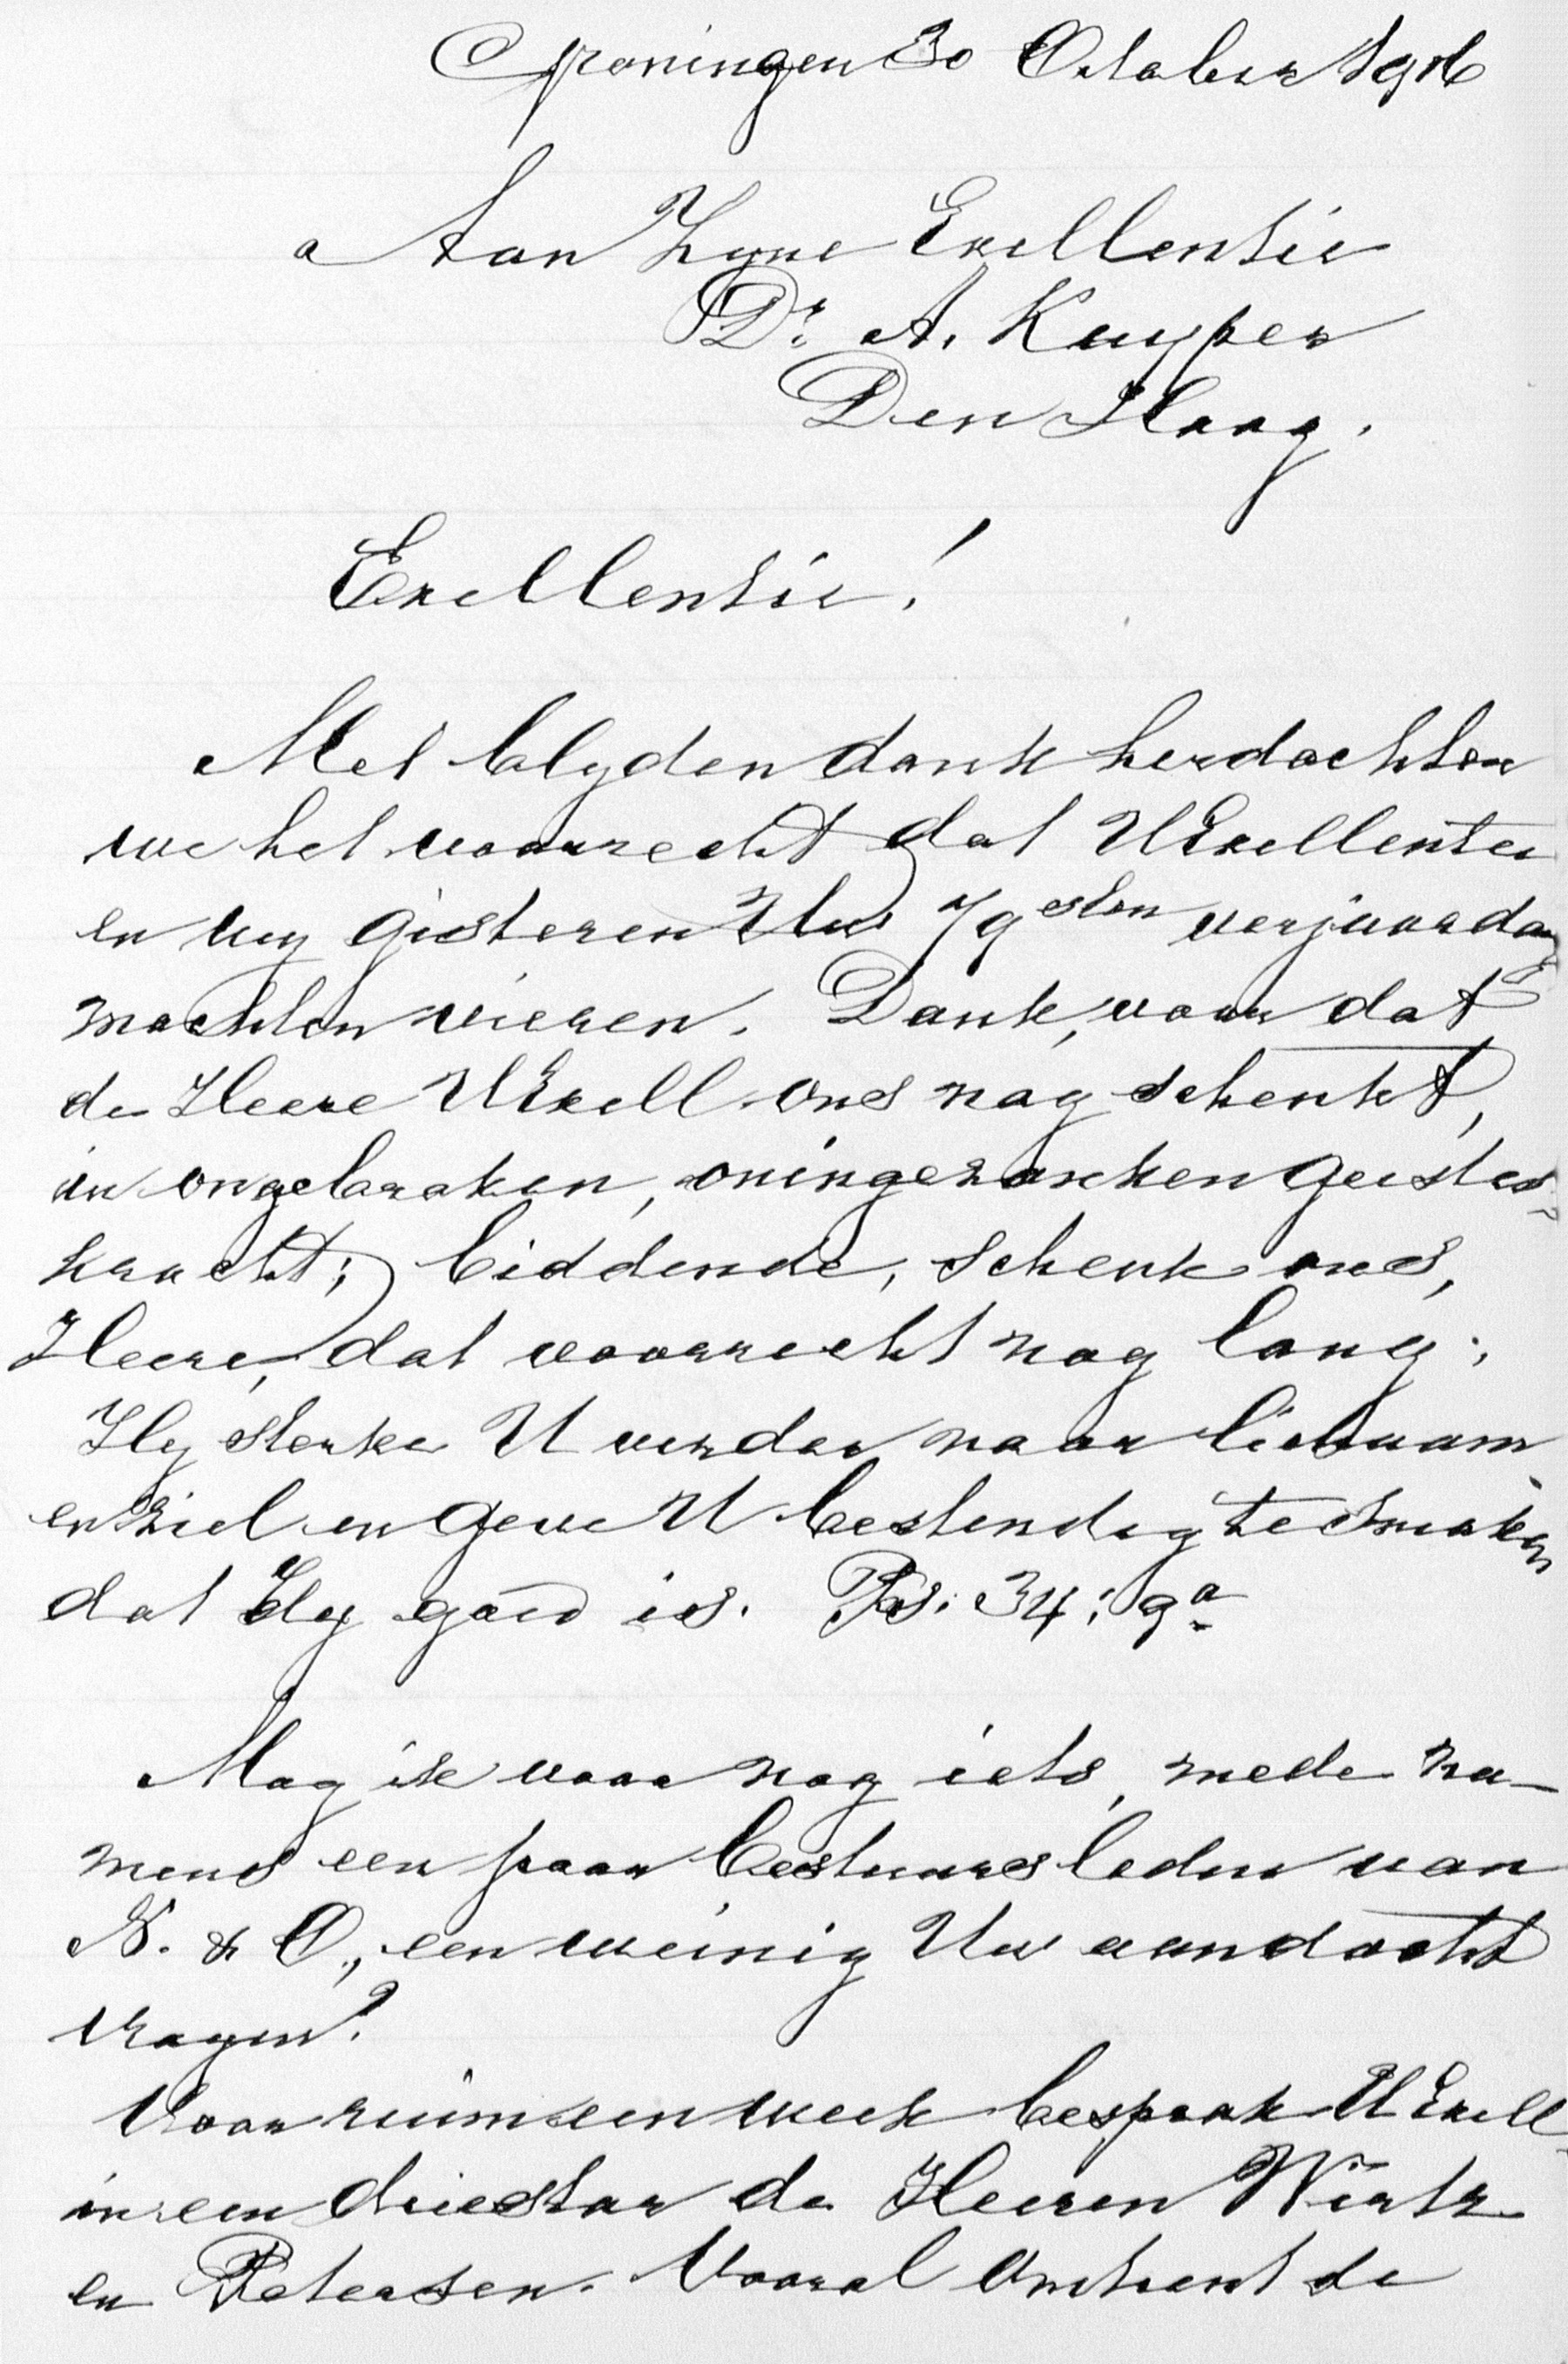 Groningen 30 October 1916
Aan Zyne Exellentie
Dr. A. Kuyper
Den Haag.
Exellentie!
Met blyden dank herdachten
we het voorrecht dat UExellentie
en wy gisteren Uw 79esten verjaardag
mochten vieren. Dank, voor dat
de Heere UExell. ons nog schenkt,
in ongebroken, oningezonken geestes-
kracht; biddende, schenk ons,
Heere, dat voorrecht nog lang;
Hy sterke U verder naar lichaam
en ziel en geve U bestendig te smaken
dat Hy goed is. Ps: 34:9a
Mag ik voor nog iets, mede na-
mens een paar bestuursleden van
N. & O., een weinig Uw aandacht
vragen?
Voor ruim een week besprak UExell.
in een driestar de Heeren Wirtz
en Petersen. Vooral omtrent de